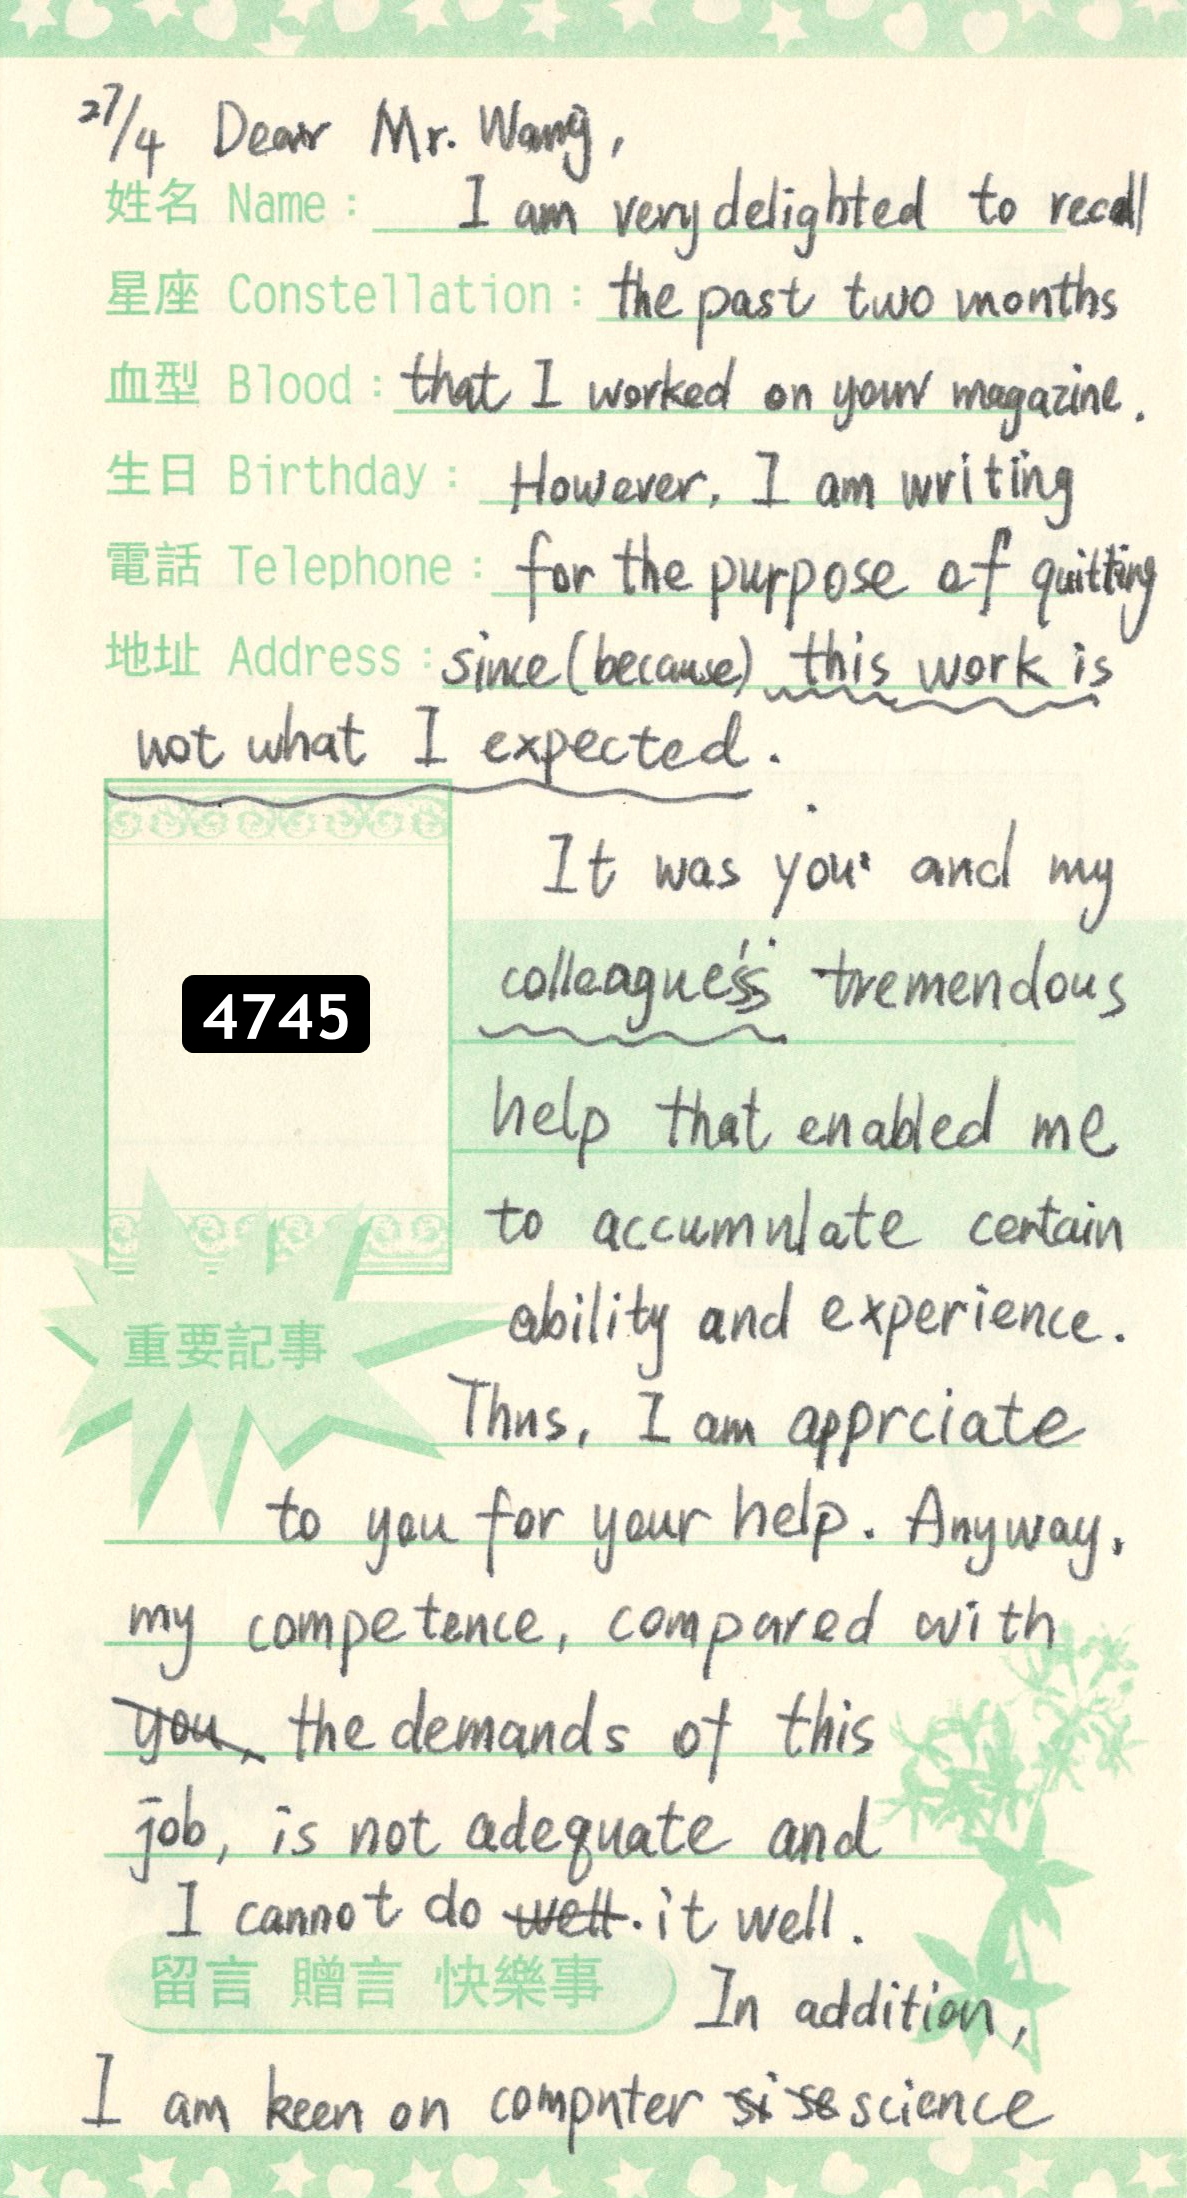 27/4 Dear Mr. Wang,
姓名 Name: I am very delighted to recall
星座 Constellation: the past two months
血型 Blood: that I worked on your magazine.
生日 Birthday: However, I am writing
電話 Telephone: for the purpose of quitting
地址 Address: since (because) this work is
not what I expected.
It was you and my
colleague's tremendous
4745
help that enabled me
to accumulate certain
ability and experience.
重要記事
Thus, I am apprciate
to you for your help. Anyway,
my competence, compared with
you the demands of this
job, is not adequate and
I cannot do well. it well.
留言 贈言 快樂事 In addition,
I am keen on computer si se science